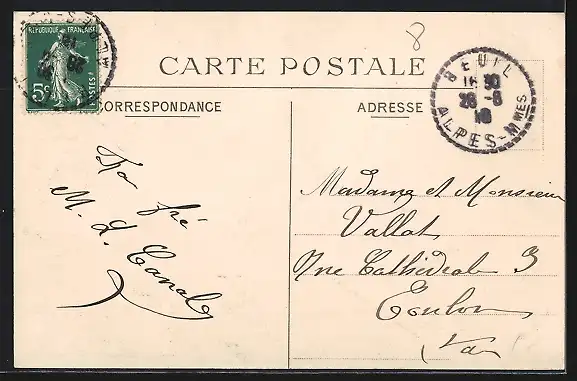 RÉPUBLIQUE FRANÇAISE
5c
POSTES
8
CARTE POSTALE
BEUIL
16 30
28 -8
10
ALPES-MMES
CORRESPONDANCE
ADRESSE
M. L.
Madame et Monsieur
Vallat
Rue Cathédrale 3
Toulon
Var